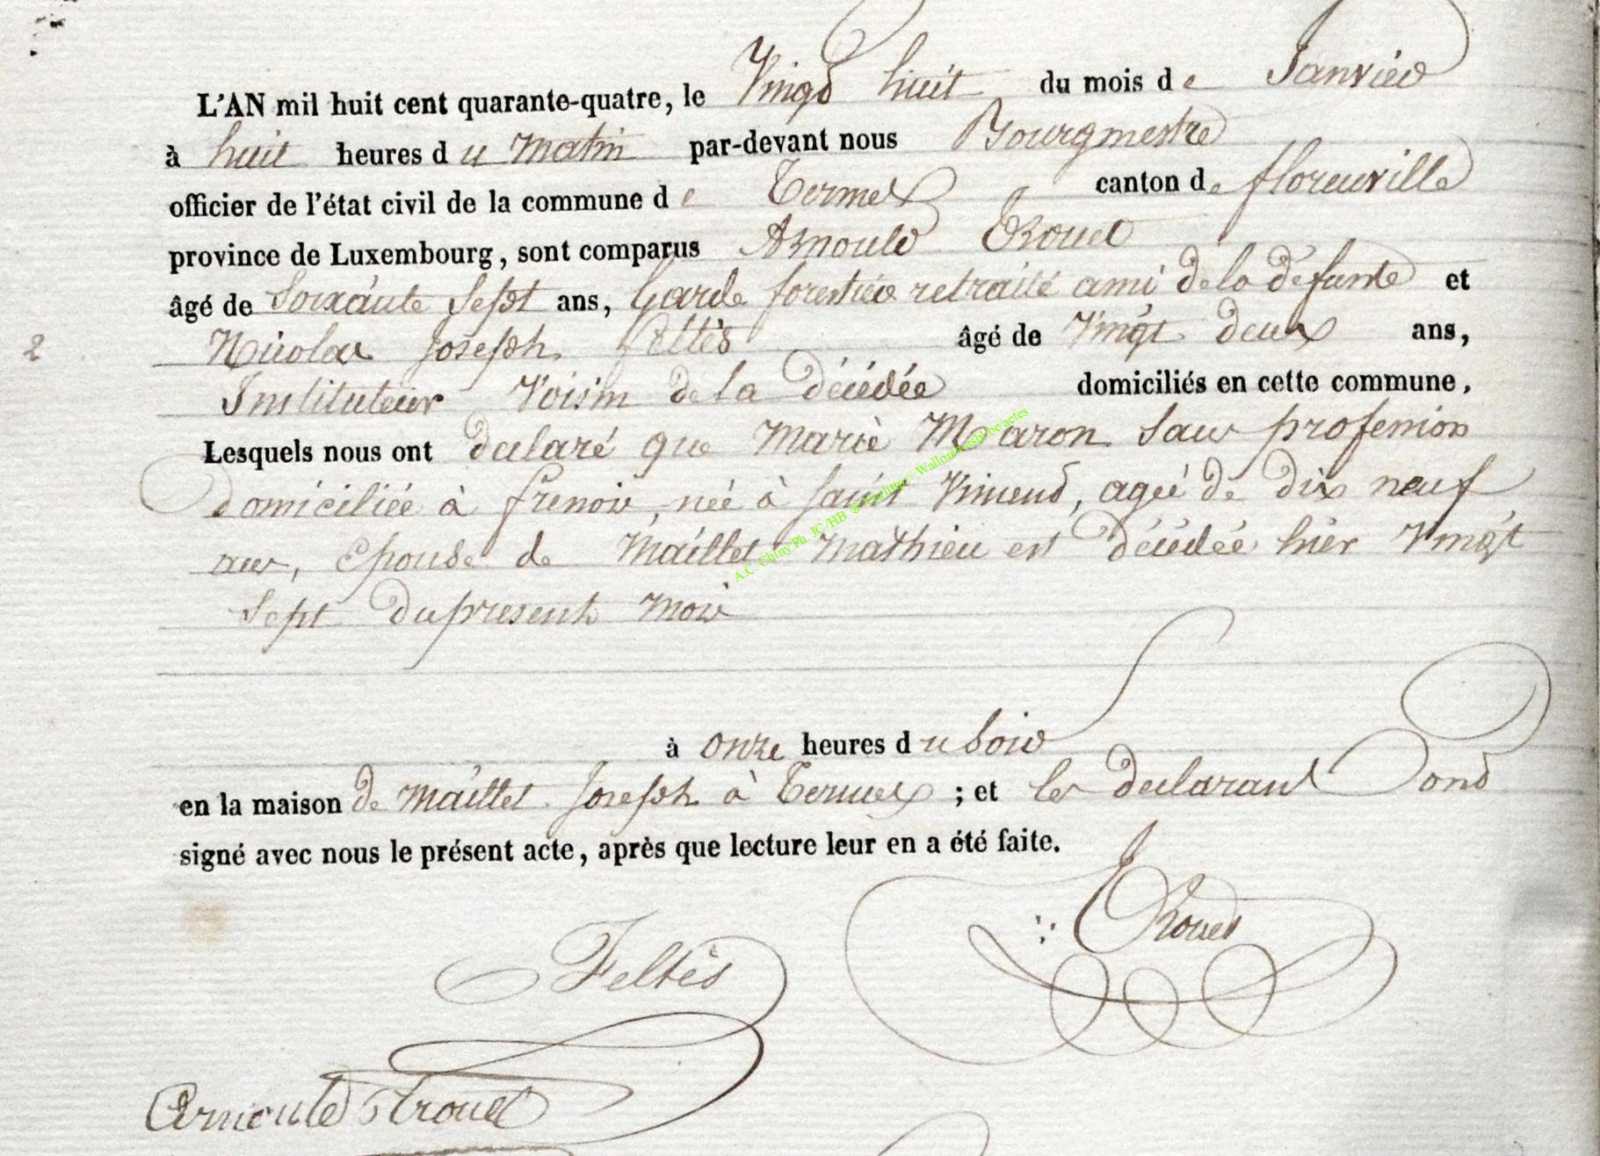 L'AN mil huit cent quarante-quatre, le Vingt huit du mois de Janvier
à huit heures du Matin par-devant nous Bourgmestre
officier de l'état civil de la commune de Termes canton de florenville
province de Luxembourg, sont comparus Arnould Trouet
âgé de Soixante Sept ans, Garde forestier retraité ami de la défunte et
2 Nicolas Joseph feltés âgé de Vingt deux ans,
Instituteur Voisin de la décédée domiciliés en cette commune,
Lesquels nous ont declaré que Marie Maron Sans profession
domiciliée à frenois, née à Saint Vincent, agée de dix neuf
ans, Epouse de Maillet Mathieu est décédée hier Vingt
Sept du present mois
à onze heures du Soir
en la maison de Maillet Joseph à Termes ; et les declarans ont
signé avec nous le présent acte, après que lecture leur en a été faite.
Trouet
Feltès
Arnould Trouet
A.C. Chiny Ph. JC HB